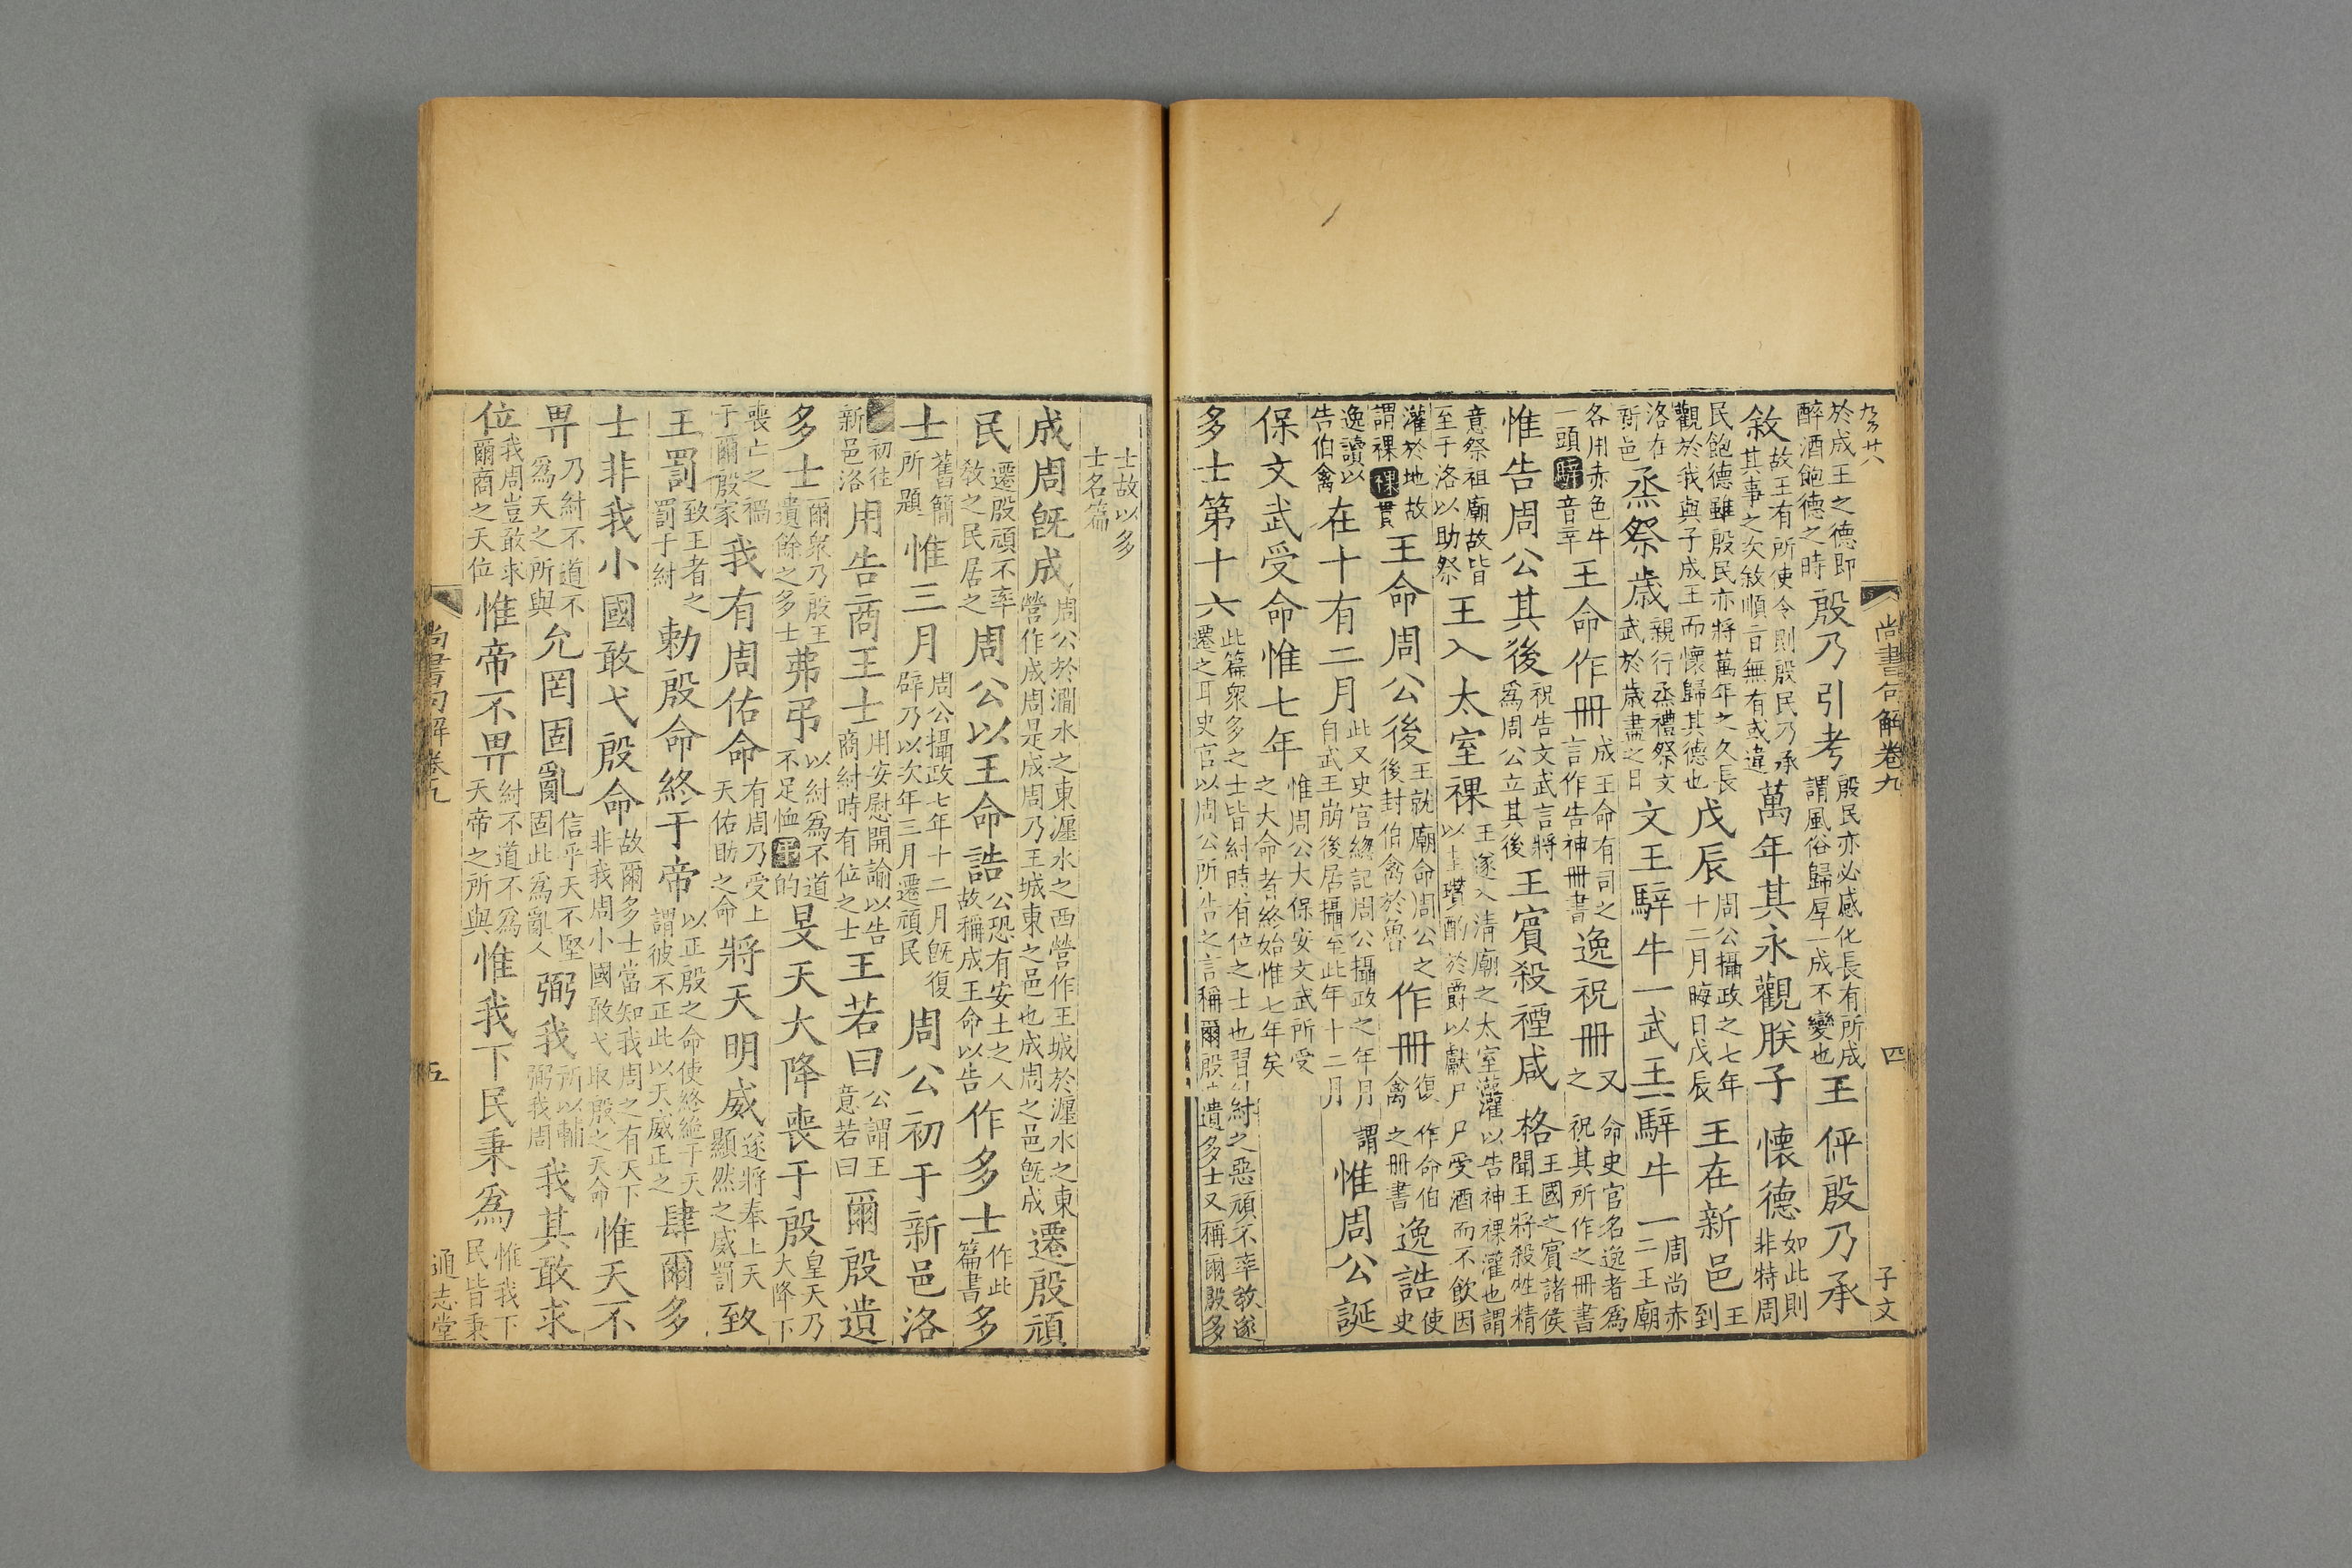 九百廿八
尚書句解卷九 四 子文
於成王之德即醉酒飽德之時殷乃引考殷民亦必感化長有所成謂風俗歸厚一成不變也王伻殷乃承
敘故王有所使令則殷民乃承其事之次敘順言無有或違萬年其永觀朕子懷德如此則非特周
民飽德雖殷民亦將萬年之久長觀於我與子成王而懷歸其德也戊辰周公攝政之七年十二月晦日戊辰王在新邑王到
洛在新邑烝祭歲親行烝禮祭文武於歲盡之日文王騂牛一武王騂牛一周尚赤二王廟
各用赤色牛一頭騂音辛王命作冊成王命有司之言作告神冊書逸祝冊又命史官名逸者爲之祝其所作之冊書
惟告周公其後祝告文武言將爲周公立其後王賓殺禋咸格王國之賓諸侯聞王將殺牲精
意祭祖廟故皆至于洛以助祭王入太室祼王遂入清廟之太室灌以告神祼灌也謂以圭瓚酌於爵以獻尸尸受酒而不飲因
灌於地故謂祼祼貫王命周公後王就廟命周公之後封伯禽於魯作冊復作命伯禽之冊書逸誥使史
逸讀以告伯禽在十有二月此又史官總記周公攝政之年月謂自武王崩後居攝至此年十二月惟周公誕
保文武受命惟七年惟周公大保安文武所受之大命者終始惟七年矣
多士第十六此篇衆多之士皆紂時有位之士也習紂之惡頑不率教遂遷之耳史官以周公所告之言稱爾殷遺多士又稱爾殷多
士故以多士名篇
成周旣成周公於澗水之東瀍水之西營作王城於瀍水之東營作成周是成周乃王城東之邑也成周之邑旣成遷殷頑
民遷殷頑不率敎之民居之周公以王命誥公恐有安土之人故稱成王命以告作多士作此篇書多
士舊簡所題惟三月周公攝政七年十二月旣復辟乃以次年三月遷頑民周公初于新邑洛
初往新邑洛用告商王士用安慰開諭以告商紂時有位之士王若曰公謂王意若曰爾殷遺
多士爾衆乃殷王遺餘之多士弗弔以紂爲不道不足恤弔的旻天大降喪于殷皇天乃大降下
喪亡之禍于爾殷家我有周佑命有周乃受上天佑助之命將天明威遂將奉上天顯然之威罰致
王罰致王者之罰于紂勅殷命終于帝以正殷之命使終絕于天謂彼不正此以天威正之肆爾多
士非我小國敢弋殷命故爾多士當知我周之有天下非我周小國敢弋取殷之天命惟天不
畀乃紂不道不爲天之所與允罔固亂信乎天不堅固此爲亂人弼我所以輔弼我周我其敢求
位我周豈敢求爾商之天位惟帝不畀紂不道不爲天帝之所與惟我下民秉爲惟我下民皆秉
尚書句解卷九 五 通志堂